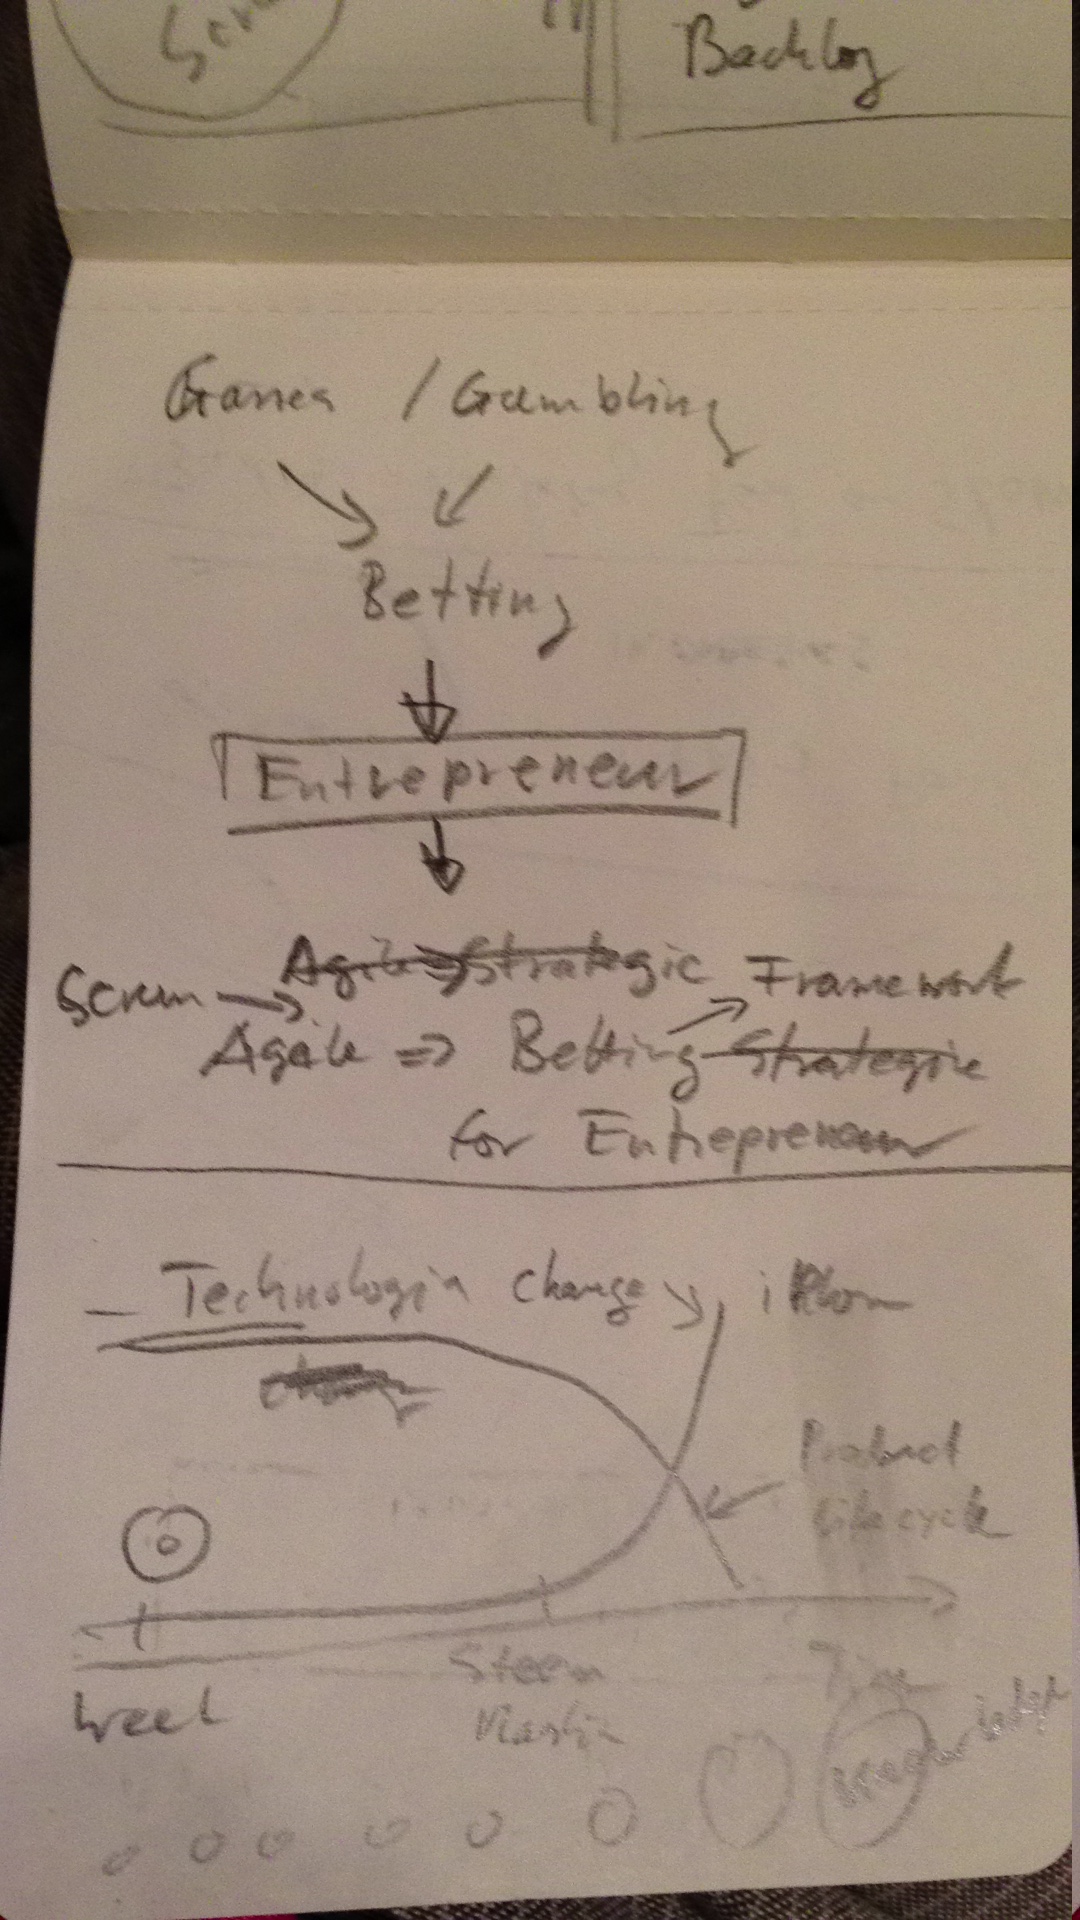 Backlog
Games / Gambling
Betting
Entrepreneur
Agile => Strategic Framework
Scrum
Agile => Betting Strategie
for Entrepreneur
Technologia change iPhone
Product
Life cycle
Time
Weel